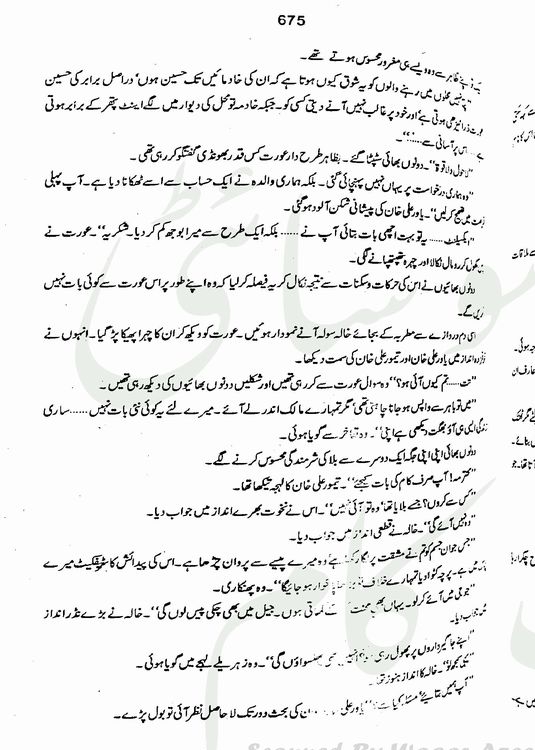 675
سے وہ ویسے ہی مغرور محسوس ہوتے تھے۔
میں رہنے والوں کو یہ شوق کیوں ہوتا ہے کہ ان کی خادمائیں تک حسین ہوں‘ دراصل برابر کی حسین
ہوتی ہے اور خود پر غالب نہیں آنے دیتی کسی کو۔ جبکہ خادمہ تو محل کی دیوار میں لگے اینٹ پتھر کے برابر ہوتی
اس پر آسانی سے
دونوں بھائی سٹپٹا گئے۔ بظاہر طرح دار عورت کس قدر بھونڈی گفتگو کر رہی تھی۔
”وہ ہماری درخواست پر یہاں نہیں پہنچائی گئی۔ بلکہ ہماری والدہ نے ایک حساب سے اسے ٹھکانا دیا ہے۔ آپ پہلی
کرلیں“۔ یاور علی خان کی پیشانی شکن آلود ہو گئی۔
یہ تو بہت اچھی بات بتائی آپ نے ...... بلکہ ایک طرح سے میرا بوجھ کم کر دیا۔ شکریہ“۔ عورت نے
کھول کر رومال نکالا اور چہرہ تھپتھپانے لگی۔
دونوں بھائیوں نے اس کی حرکات و سکنات سے نتیجہ نکال کر یہ فیصلہ کر لیا کہ وہ اپنے طور پر اس عورت سے کوئی بات نہیں
کریں گے۔
اسی دم دروازے سے مطربہ کے بجائے خالہ سولہ آنے نمودار ہوئیں۔ عورت کو دیکھ کر ان کا چہرا پھیکا پڑ گیا۔ انہوں نے
انداز میں یاور علی خان اور تیمور علی خان کی سمت دیکھا۔
”تت ..... تم کیوں آئی ہو؟“ وہ سوال عورت سے کر رہی تھیں اور شکلیں دونوں بھائیوں کی دیکھ رہی تھیں۔
”میں تو باہر سے واپس ہو جانا چاہتی تھی‘ مگر تمہارے مالک اندر لے آئے۔ میرے لئے یہ کوئی نئی بات نہیں ...... ساری
زندگی ایسی ہی آؤ بھگت دیکھی ہے اپنی“۔ وہ تفاخر سے گویا ہوئی۔
دونوں بھائی اپنی اپنی جگہ ایک دوسرے سے بلا کی شرمندگی محسوس کرنے لگے۔
”محترمہ! آپ صرف کام کی بات کیجئے“۔ تیمور علی خان کا لہجہ تیکھا تھا۔
”کس سے کروں؟ جسے بلایا تھا‘ وہ تو آئی نہیں“۔ اس نے نخوت بھرے انداز میں جواب دیا۔
”وہ نہیں آئے گی“۔ خالہ نے قطعی انداز میں جواب دیا۔
”جس جوان جسم کو تم نے مشقت پر لگا رکھا ہے وہ میرے پیسے سے پروان چڑھا ہے۔ اس کی پیدائش کا سرٹیفکیٹ میرے
پاس ہے۔ پرچہ کٹوا دیا تمہارے خلاف تو بڑھاپا خوار ہو جائیگا“۔ وہ پھنکاری۔
”جو جی میں آئے کرلو۔ یہاں بھی محنت کر کے کھاتی ہوں۔ جیل میں بھی چکی پیس لوں گی“۔ خالہ نے بڑے نڈر انداز
میں جواب دیا۔
”اپنے جاگیرداروں پر پھول رہی
وہ زہریلے لہجے میں گویا ہوئی۔
خالہ کا انداز ہنوز تھا۔
”آپ ہمیں بتائیے‘ مسئلہ کیا ہے“۔ یاور علی خان کو ان کی بحث دور تک لا حاصل نظر آئی تو بول پڑے۔